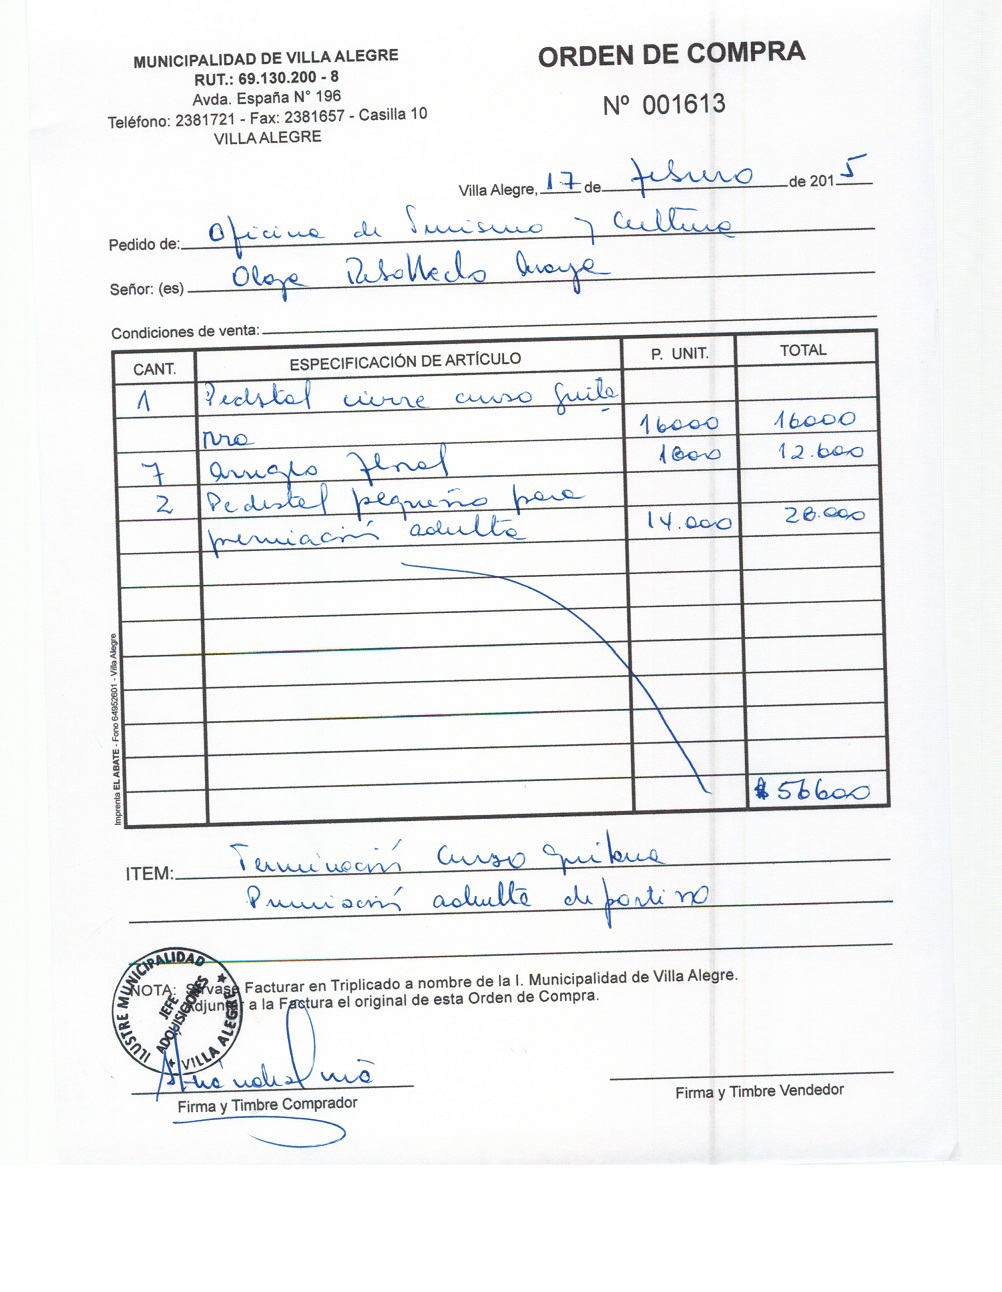 MUNICIPALIDAD DE VILLA ALEGRE
RUT.: 69.130.200 - 8
Avda. España N° 196
Teléfono: 2381721 - Fax: 2381657 - Casilla 10
VILLA ALEGRE
ORDEN DE COMPRA
Nº 001613
Villa Alegre, 17 de febrero de 2015
Pedido de: Oficina de Turismo y Cultura
Señor: (es) Olga Rebolledo
Condiciones de venta:
CANT. ESPECIFICACIÓN DE ARTÍCULO P. UNIT. TOTAL
1 Pedstal cierre curso guita
rra 16000 16000
7 arreglo floral 1800 12.600
2 Pedestal pequeño para
premiación adulto 14.000 28.000
$56600
ITEM: Terminación Curso guitarra
Premiación adulto deportivo
NOTA: Sírvase Facturar en Triplicado a nombre de la I. Municipalidad de Villa Alegre.
Adjuntar a la Factura el original de esta Orden de Compra.
ILUSTRE MUNICIPALIDAD
JEFE
ADQUISICIONES
VILLA ALEGRE
Firma y Timbre Comprador
Firma y Timbre Vendedor
Imprenta EL ABATE - Fono 64952601 - Villa Alegre